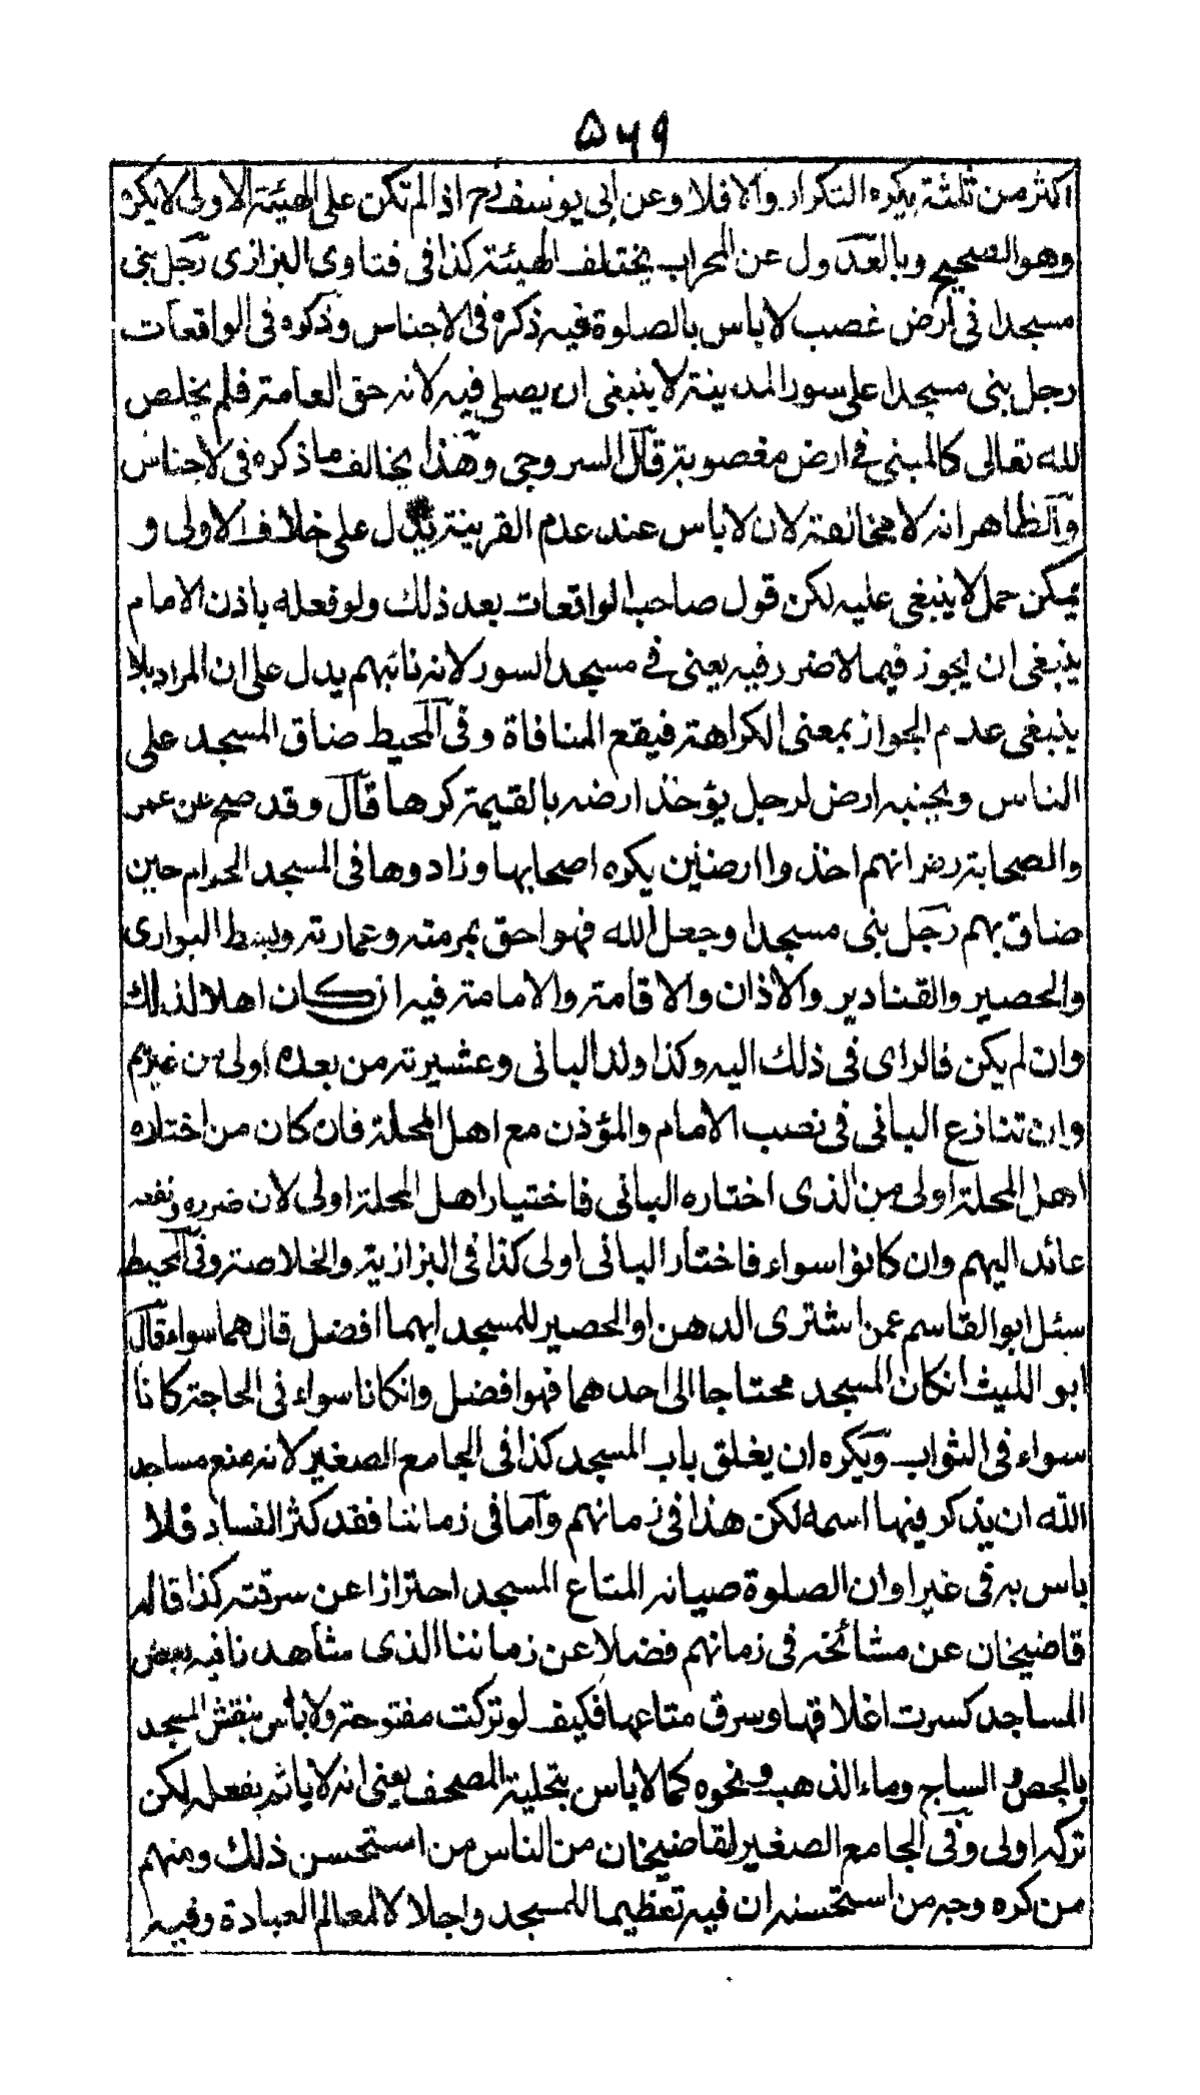 ۵۶۹
اكثر من ثلثة يكره التكرار والا فلا وعن ابى يوسف رح اذا لم تكن على الهيئة الاولى لا يكره
وهو الصحيح وبالعدول عن المحراب يختلف الهيئة كذا فى فتاوى البزازى رجل بنى
مسجدا فى ارض غصب لا باس بالصلوة فيه ذكره فى الاجناس وذكره فى الواقعات
رجل بنى مسجدا على سور المدينة لا ينبغى ان يصلى فيه لانه حق العامة فلم يخلص
لله تعالى كالمبنى فى ارض مغصوبة قال السروجى وهذا يخالف ما ذكره فى لاجناس
والظاهر انه لا مخالفة لان لا باس عند عدم القرينة يدل على خلاف الاولى و
يمكن حمل لا ينبغى عليه لكن قول صاحب الواقعات بعد ذلك ولو فعله باذن الامام
ينبغى ان يجوز فيما لا ضرر فيه يعنى فى مسجد السور لانه نائبهم يدل على ان المراد بلا
ينبغى عدم الجواز بمعنى الكراهة فيقع المنافاة وفى المحيط ضاق المسجد على
الناس وبجنبه ارض لرجل يؤخذ ارضه بالقيمة كرها قال وقد صح عن عمر
والصحابة رضر انهم اخذوا ارضين يكره اصحابها وزادوها فى المسجد الحرام حين
ضاق بهم رجل بنى مسجدا وجعل لله فهو احق بمرمته وعمارته وبسط البوارى
والحصير والقنادير والاذان والاقامة والامامة فيه ان كان اهلا لذلك
وان لم يكن فالراى فى ذلك اليه وكذا ولد البانى وعشيرته من بعده اولى من غيرهم
وان تنازع البانى فى نصب الامام والمؤذن مع اهل المحلة فان كان من اختاره
اهل المحلة اولى من الذى اختاره البانى فاختيار اهل المحلة اولى لان ضرره ونفعه
عائد اليهم وان كانوا سواء فاختار البانى اولى كذا فى البزازية والخلاصة وفى المحيط
سئل ابو القاسم عمن اشترى الدهن او الحصير للمسجد ايهما افضل قال هما سواء قال
ابو الليث انكان المسجد محتاجا الى احدهما فهو افضل وانكانا سواء فى الحاجة كانا
سواء فى الثواب ويكره ان يغلق باب المسجد كذا فى الجامع الصغير لانه منع مساجد
الله ان يذكر فيها اسمه لكن هذا فى زمانهم واما فى زماننا فقد كثر الفساد فلا
باس به فى غير اوان الصلوة صيانه المتاع المسجد احترازا عن سرقته كذا قاله
قاضيخان عن مشائخه فى زمانهم فضلا عن زماننا الذى شاهدنا فيه بعض
المساجد كسرت اغلاقها وسرق متاعها فكيف لو تركت مفتوحة ولا بأس بنقش المسجد
بالجص والساج وماء الذهب ونحوه كما لا باس بتحلية المصحف يعنى انه لا ياثم بفعله لكن
تركه اولى وفى الجامع الصغير لقاضيخان من الناس من استحسن ذلك ومنهم
من كره وجه من استحسنه ان فيه تعظيما للمسجد واجلالا لمعالم العبادة وفيه